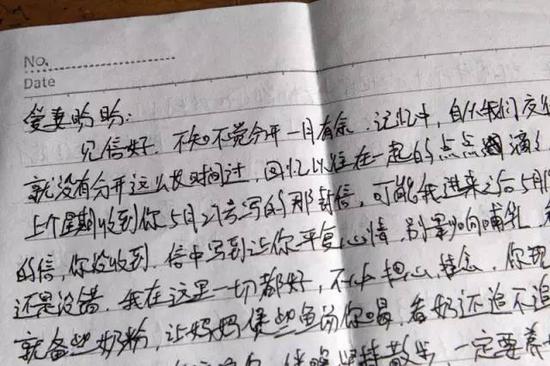 No.
Date
爱妻盼盼:
见信好. 不知不觉分开一月有余. 记忆中, 自从我们交
就没有分开这么长时间过, 回忆以往在一起的点点滴
上个星期收到你5月27号写的那封信, 可能我进来之后5月
的信, 你没收到. 信中写到让你平复心情, 别影响哺乳,
还是没错. 我在这里一切都好, 不必担心挂念, 你现
就备些奶粉, 让妈妈煲些鱼汤你喝, 看奶还追不追
坚持散步, 一定要养